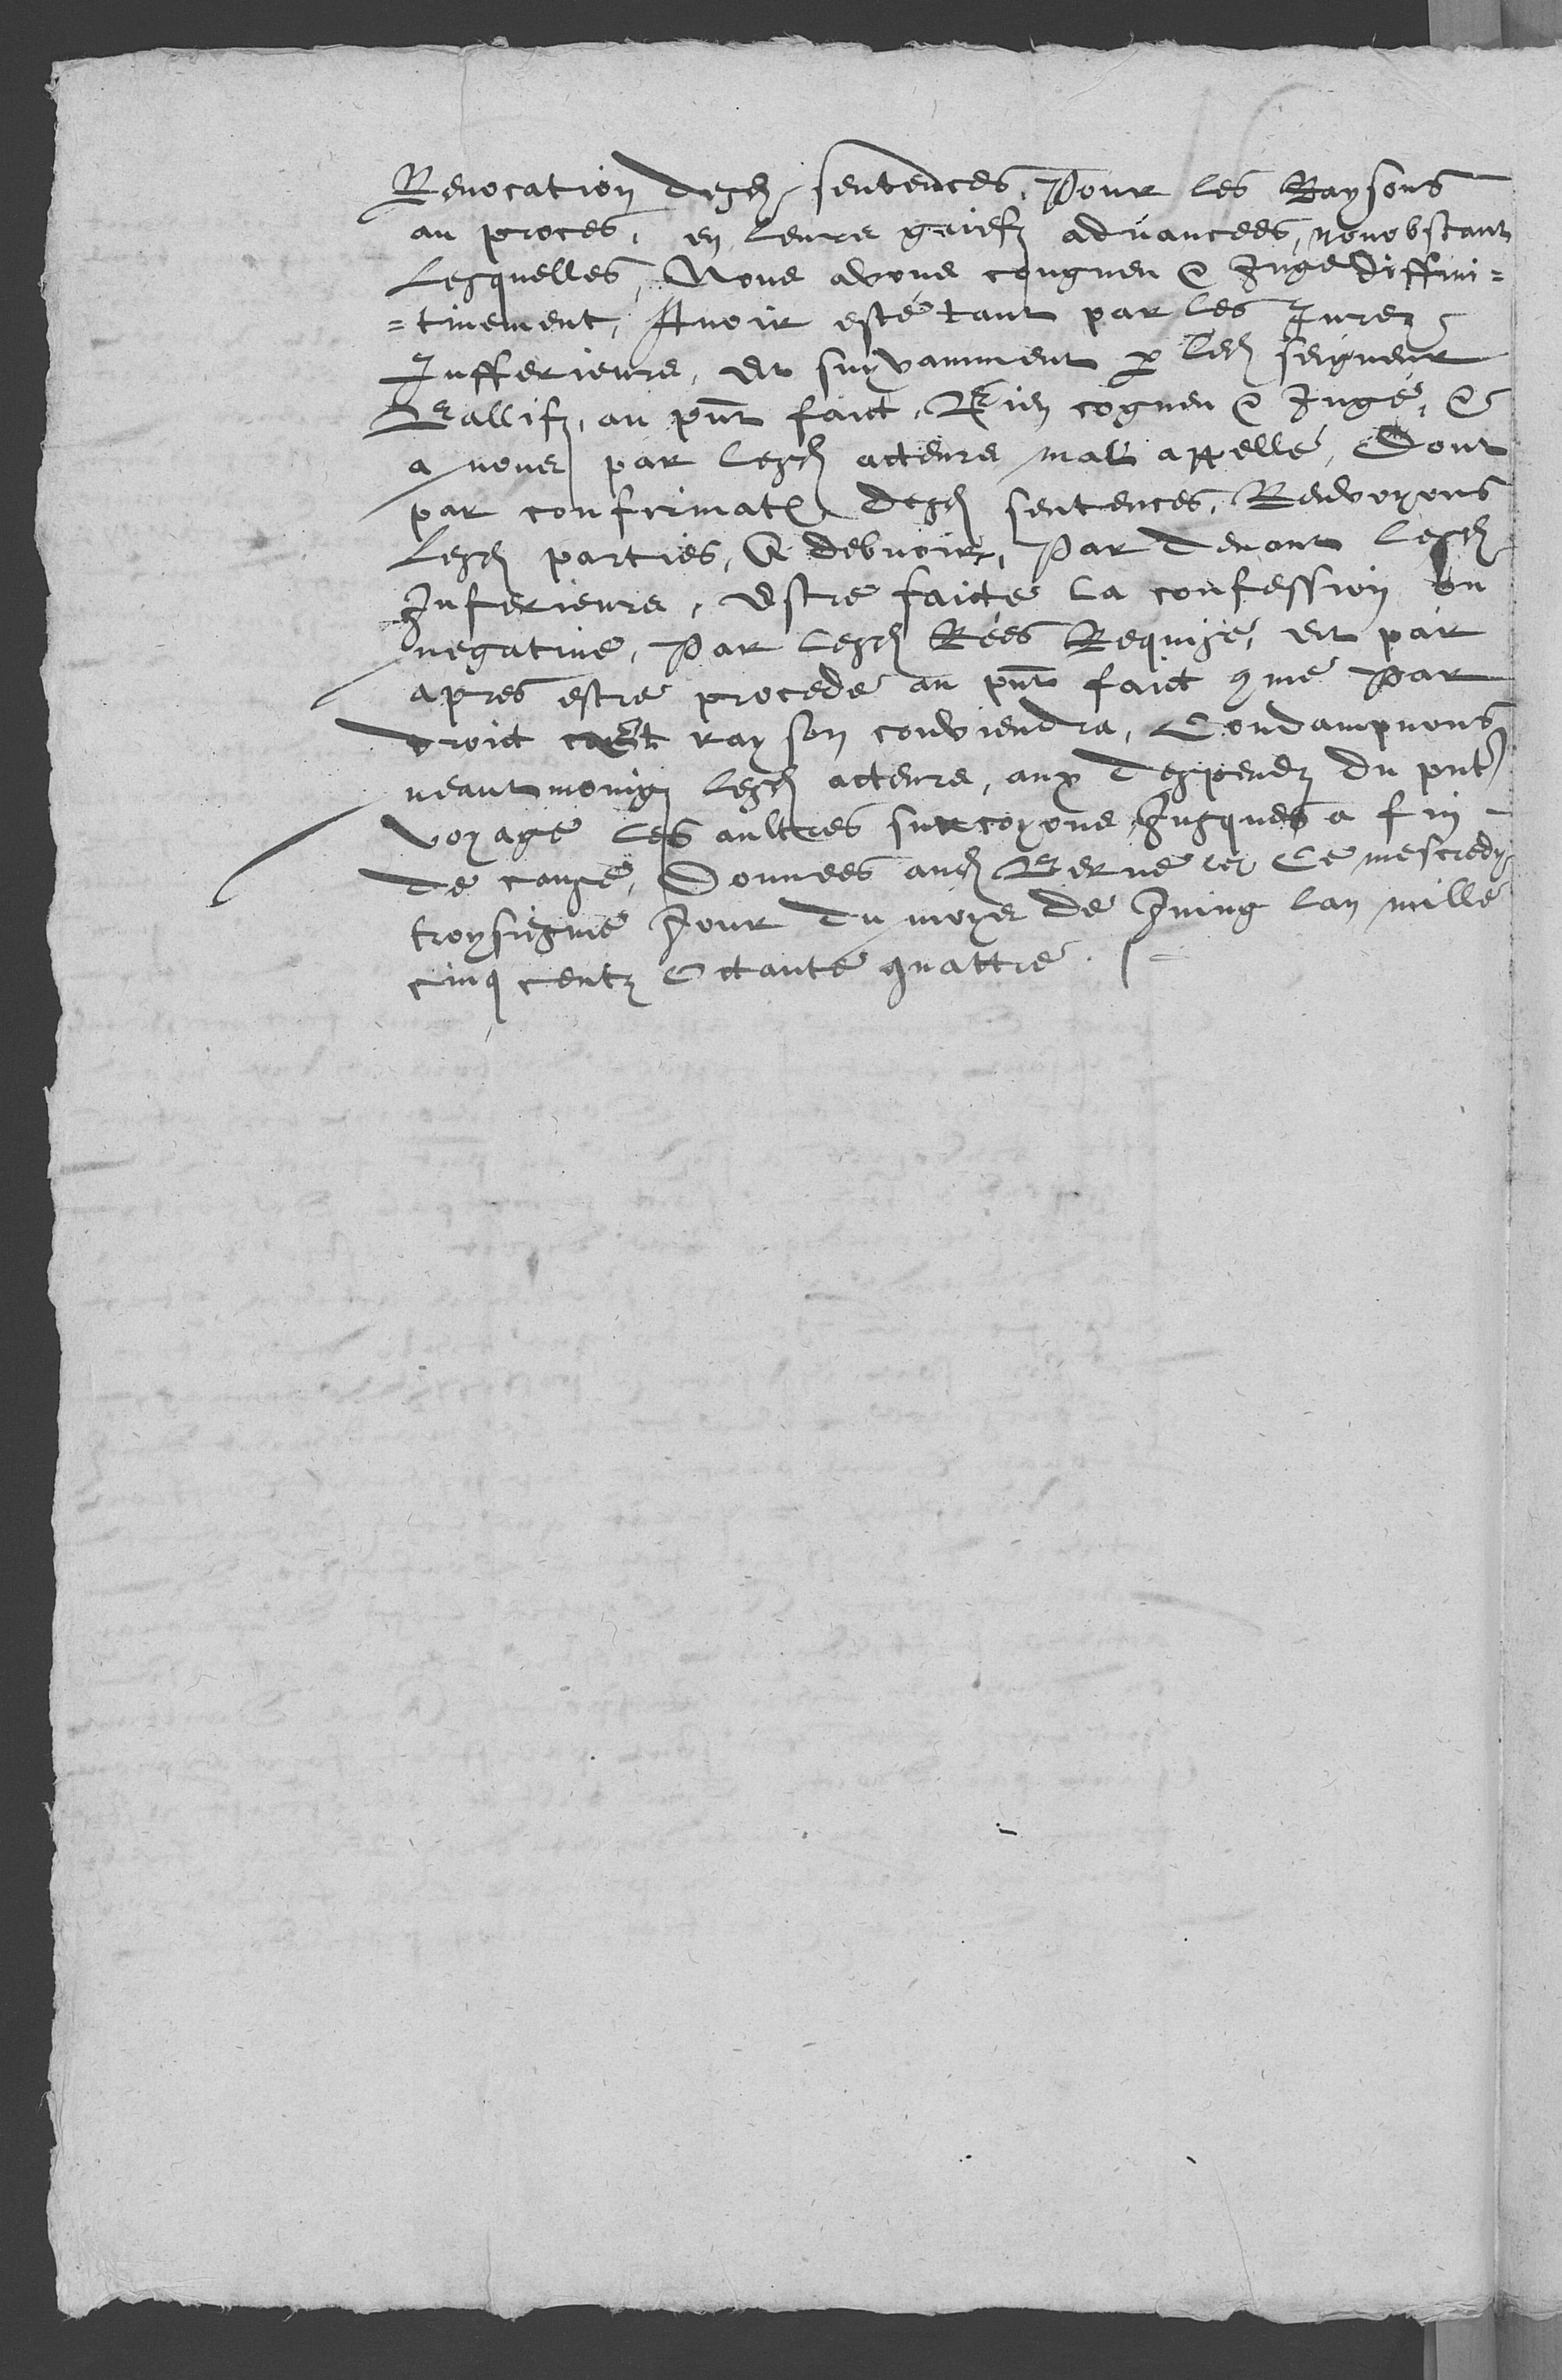 Revocation desd sentences, Pour les Raysons
au proces, en leurs griefz advancees, nonobstant
Lesquelles, Nous avons congneu & Juge diffini=
=tivement, Avoir esté tant par les Jurez
Jnfferieurs, et suyvamment p led seigneur
Ballifz, au pnt faict, Bien cogneu & Jugé, &
a nous par lesd acteurs mal appellé, Dont
par confirmat desd sentences, Renvoyons
Lesd parties, A debvoir, Par devant lesd
Jnferieurs, Estre faicte la confession ou
negative, Par lesd Rées Requise, et par
apres estre procede au pnt faict 9me Par
droict Et rayson conviendra, Condampnons
neantmoings lesd acteurs, aux despendz du pnt
voyage les aultres surcoyons Jusques a fin
de cause, Donnees aud Berne Ce mescredy
troysiesme Jour du moys de Juing lan mille
cinq centz Octante quattre.